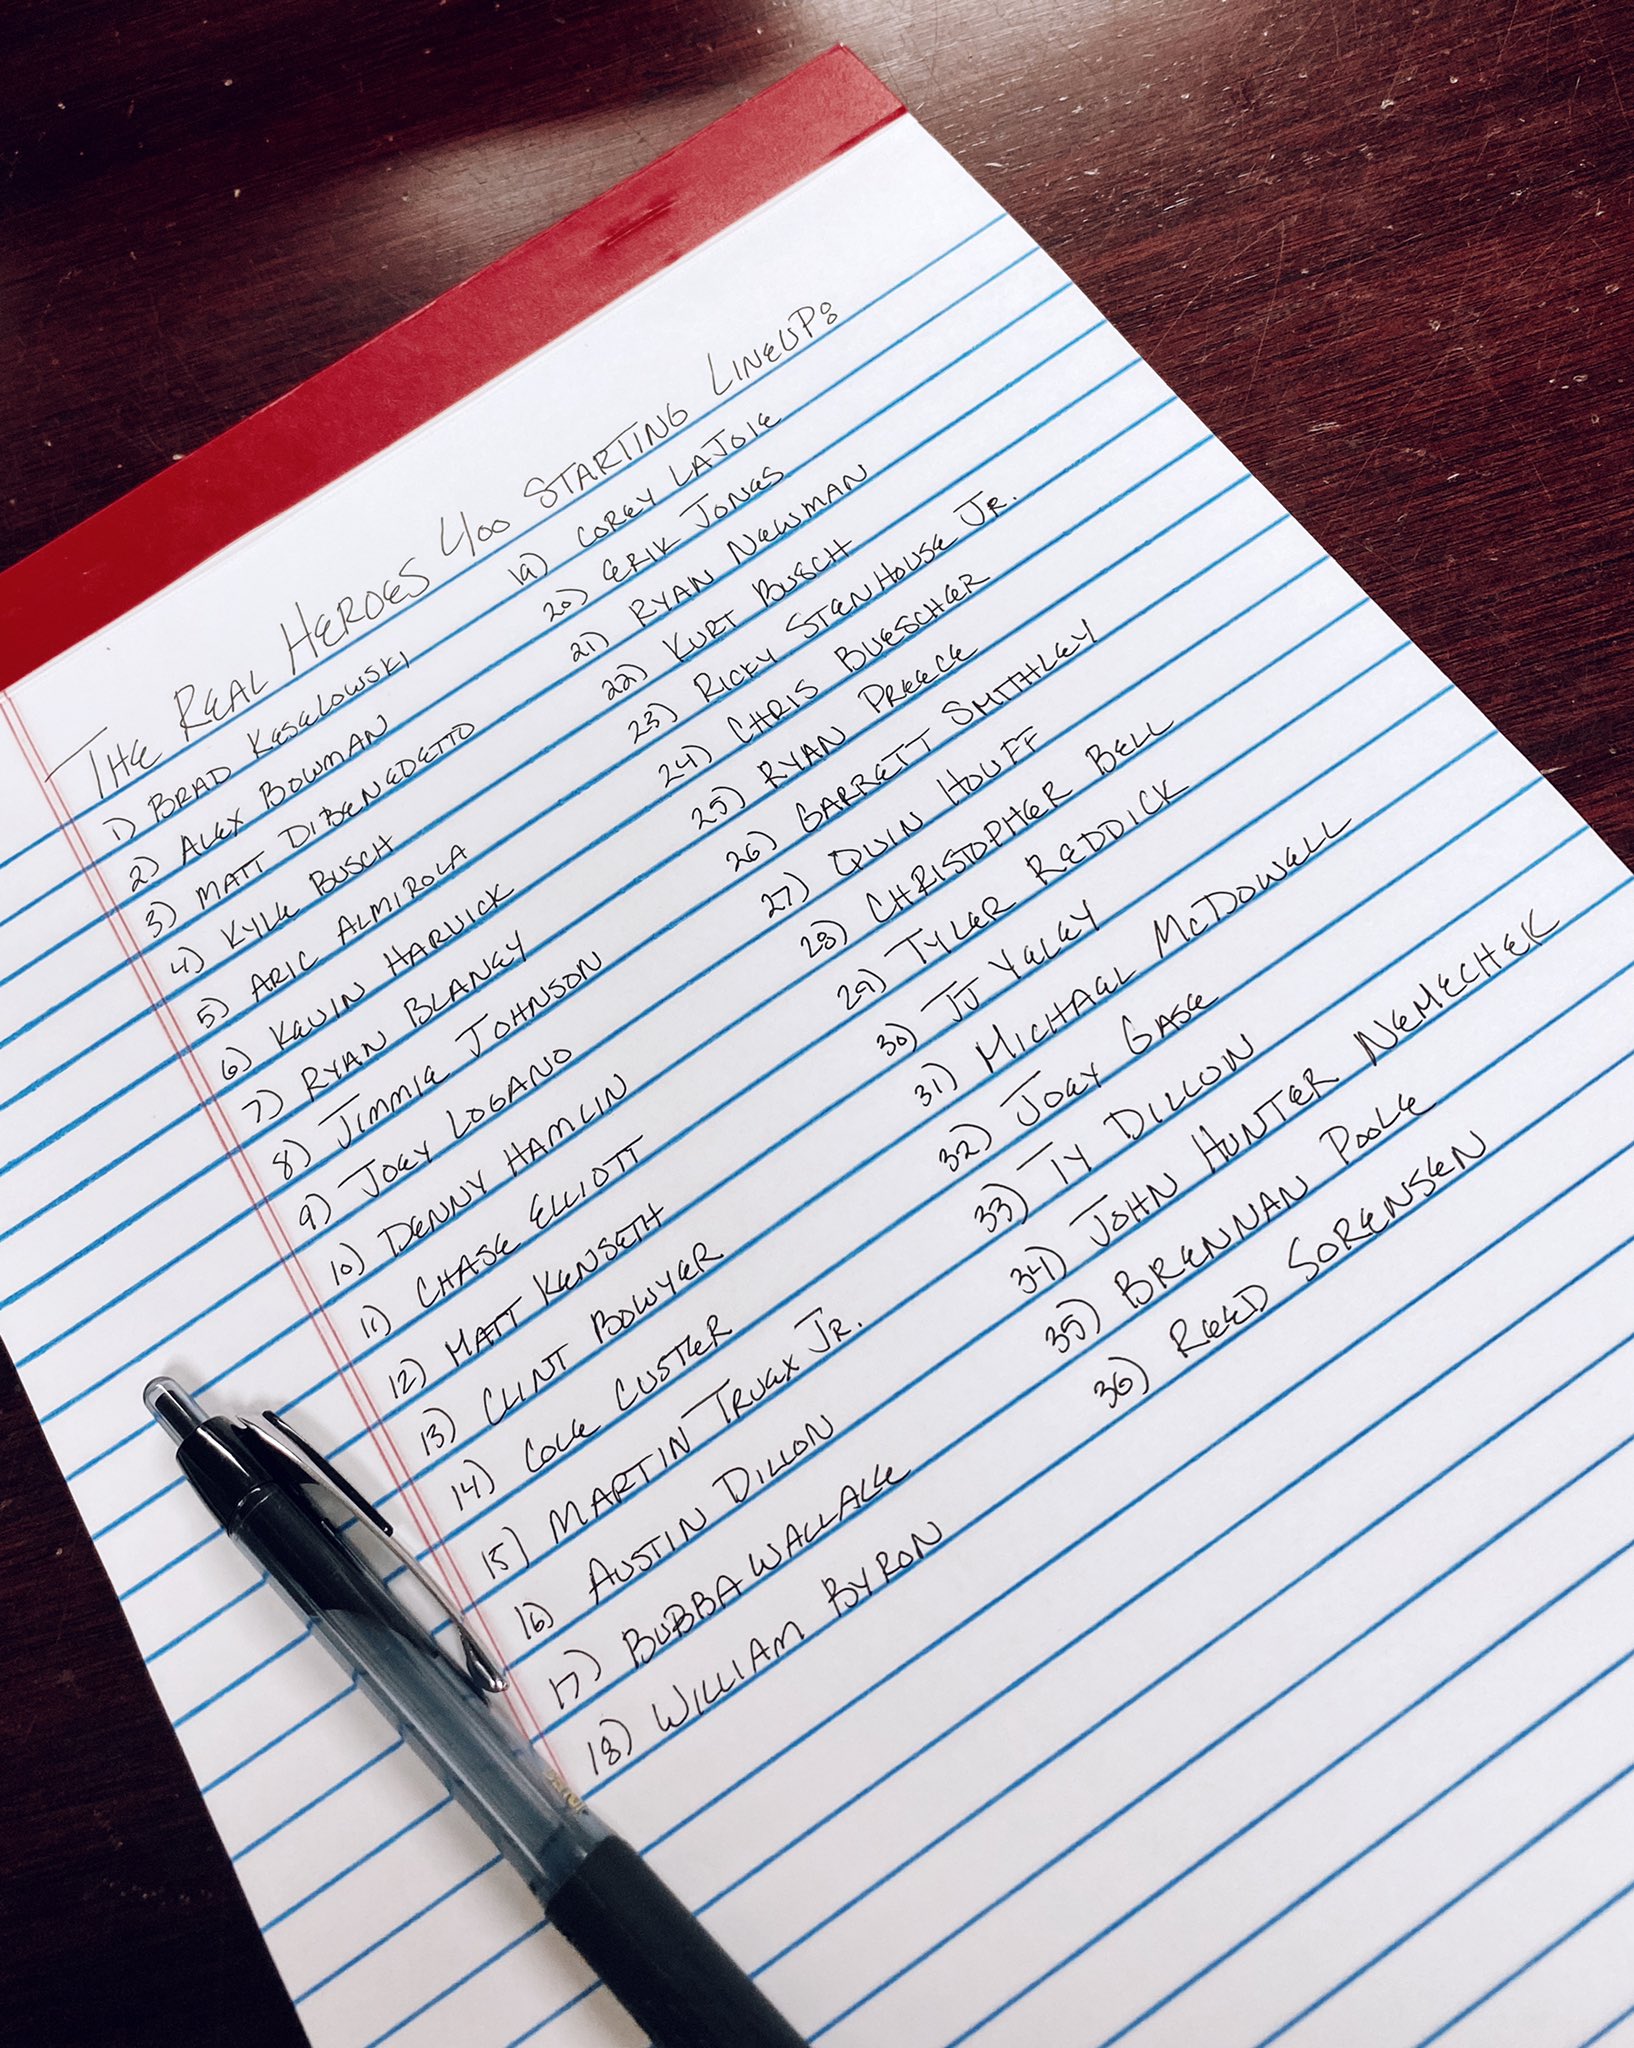 The Real Heroes 400 Starting Lineup:
1) Brad Keselowski
2) Alex Bowman
3) Matt DiBenedetto
4) Kyle Busch
5) Aric Almirola
6) Kevin Harvick
7) Ryan Blaney
8) Jimmie Johnson
9) Joey Logano
10) Denny Hamlin
11) Chase Elliott
12) Matt Kenseth
13) Clint Bowyer
14) Cole Custer
15) Martin Truex Jr.
16) Austin Dillon
17) Bubba Wallace
18) William Byron
19) Corey LaJoie
20) Erik Jones
21) Ryan Newman
22) Kurt Busch
23) Ricky Stenhouse Jr.
24) Chris Buescher
25) Ryan Preece
26) Garrett Smithley
27) Quin Houff
28) Christopher Bell
29) Tyler Reddick
30) JJ Yeley
31) Michael McDowell
32) Joey Gase
33) Ty Dillon
34) John Hunter Nemechek
35) Brennan Poole
36) Reed Sorensen